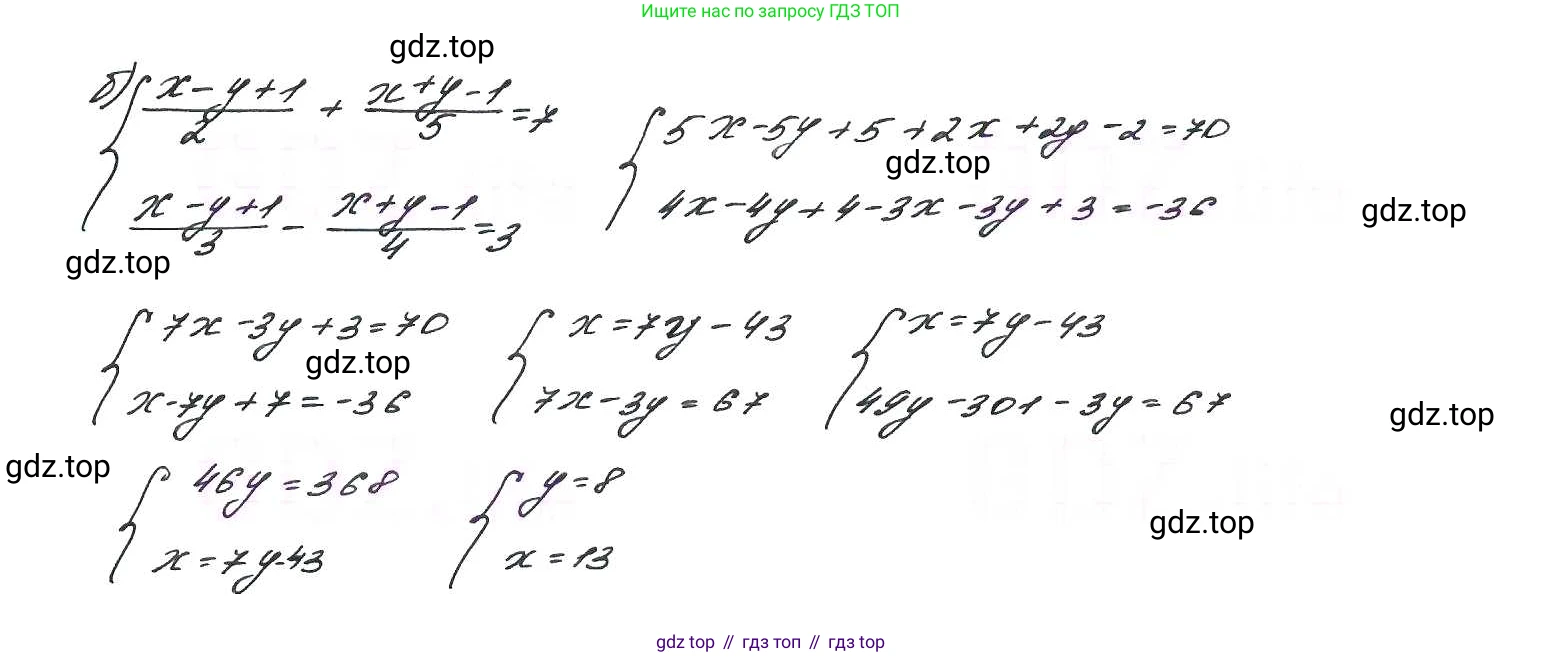 Ищите нас по запросу ГДЗ ТОП
gdz.top
б) { (x-y+1)/2 + (x+y-1)/5 = 7
(x-y+1)/3 - (x+y-1)/4 = 3
{ 5x-5y+5+2x+2y-2=70
gdz.top
4x-4y+4-3x-3y+3=-36
gdz.top
gdz.top
{ 7x-3y+3=70
gdz.top
x-7y+7=-36
{ x=7y-43
7x-3y=67
{ x=7y-43
49y-301-3y=67
gdz.top
gdz.top
{ 46y=368
x=7y-43
{ y=8
x=13
gdz.top
gdz top // гдз топ // гдз top